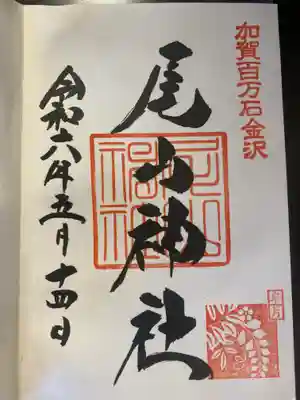 加賀百万石金沢
尾山神社
令和六年五月十四日